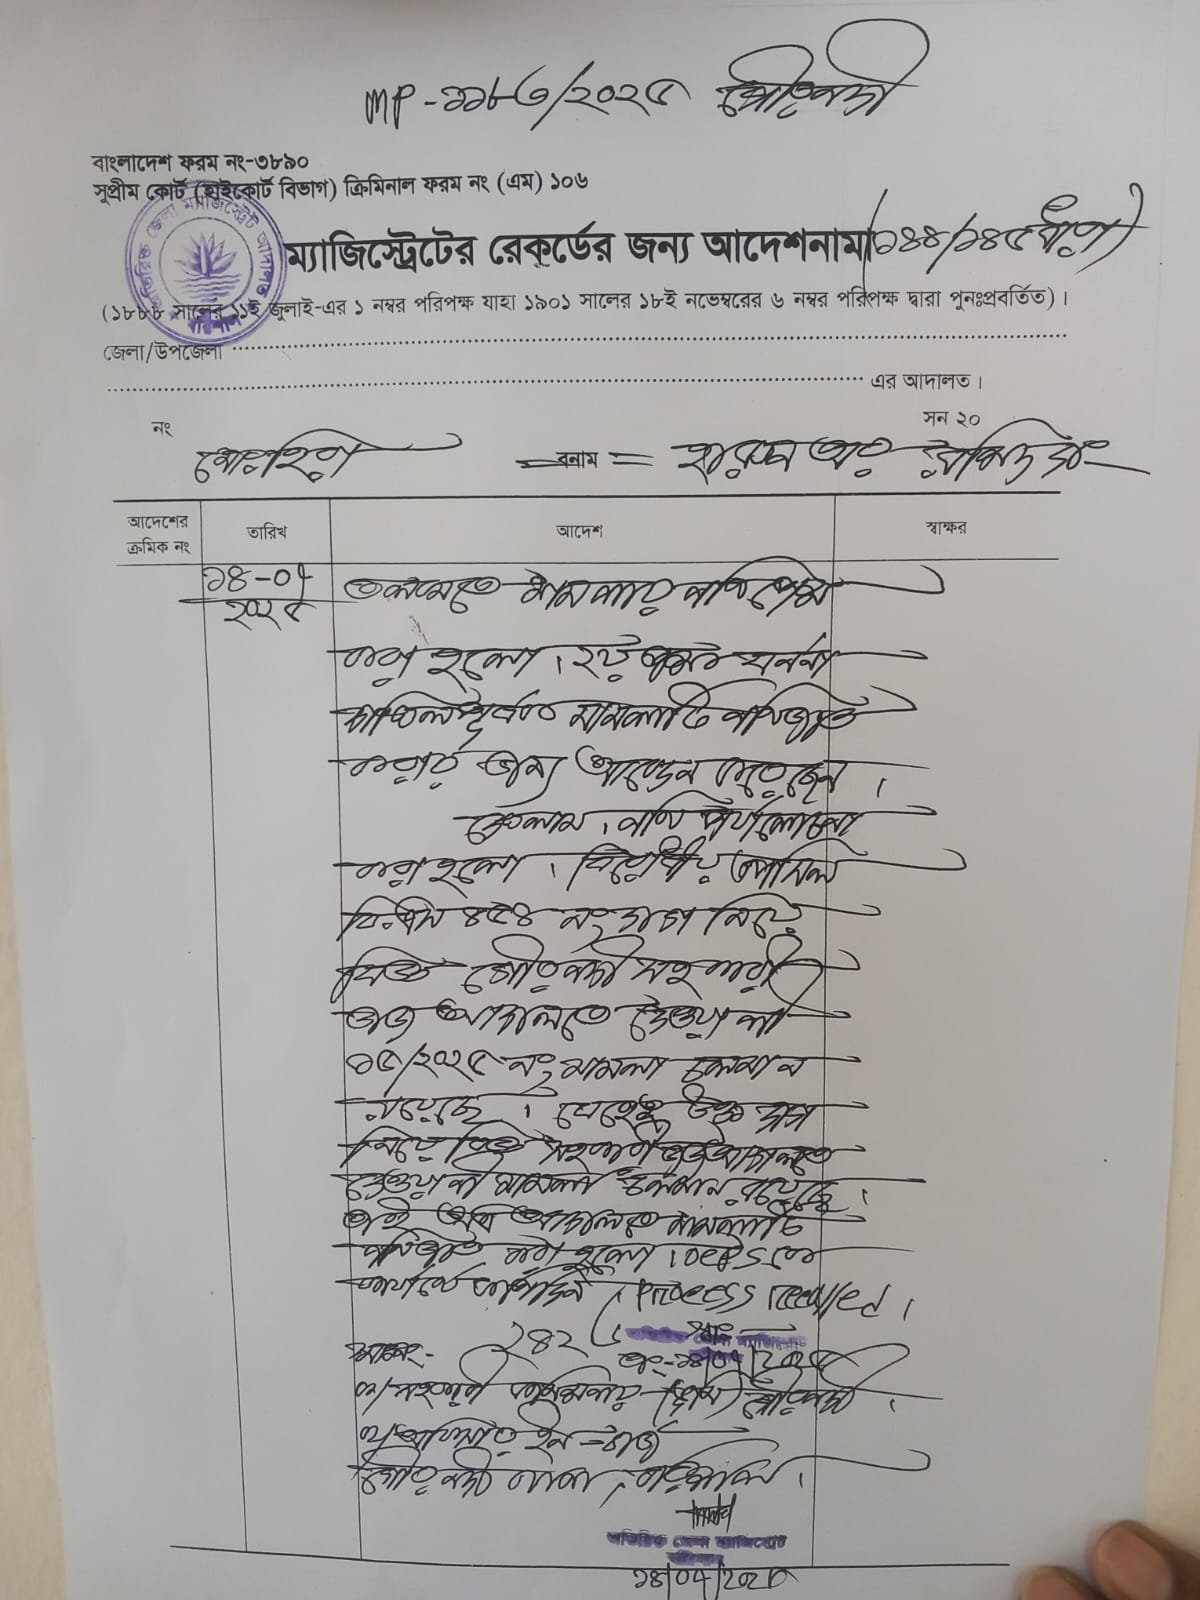 MP-১১৮৩/২০২৫ গৌরনদী
বাংলাদেশ ফরম নং-৩৮৯০
সুপ্রীম কোর্ট (হাইকোর্ট বিভাগ) ক্রিমিনাল ফরম নং (এম) ১০৬
ম্যাজিস্ট্রেটের রেকর্ডের জন্য আদেশনামা (১৪৪/১৪৫ ধারা)
(১৮৮৮ সালের ১১ই জুলাই-এর ১ নম্বর পরিপক্ষ যাহা ১৯০১ সালের ১৮ই নভেম্বরের ৬ নম্বর পরিপক্ষ দ্বারা পুনঃপ্রবর্তিত)।
জেলা/উপজেলা
এর আদালত।
নং
সন ২০
বনাম
আদেশের ক্রমিক নং
তারিখ
আদেশ
স্বাক্ষর
১৪-০৭
২০২৫
মামলার নথি পেশ
করা হলো। ২য় পক্ষ
মামলাটি নথিজাত
করার জন্য আবেদন করেছেন।
দেখলাম। নথি পর্যালোচনা
করা হলো।
৪৫৪ নং দাগ নিয়ে
বিজ্ঞ গৌরনদী সহকারী
জজ আদালতে দেওয়ানী
১৫/২০২৫ নং মামলা চলমান
রয়েছে। যেহেতু উক্ত দাগ
নিয়ে বিজ্ঞ সহকারী জজ আদালতে
দেওয়ানী মামলা চলমান রয়েছে।
তাই অত্র আদালতে মামলাটি
নথিজাত করা হলো।
Process recalled।
২৪২
তাং-১৪/০৭/২০২৫
১/ সহকারী কমিশনার (ভূমি) গৌরনদী।
২/ অফিসার ইন-চার্জ
গৌরনদী থানা, বরিশাল।
অতিরিক্ত জেলা ম্যাজিস্ট্রেট
বরিশাল
১৪/০৭/২০২৫